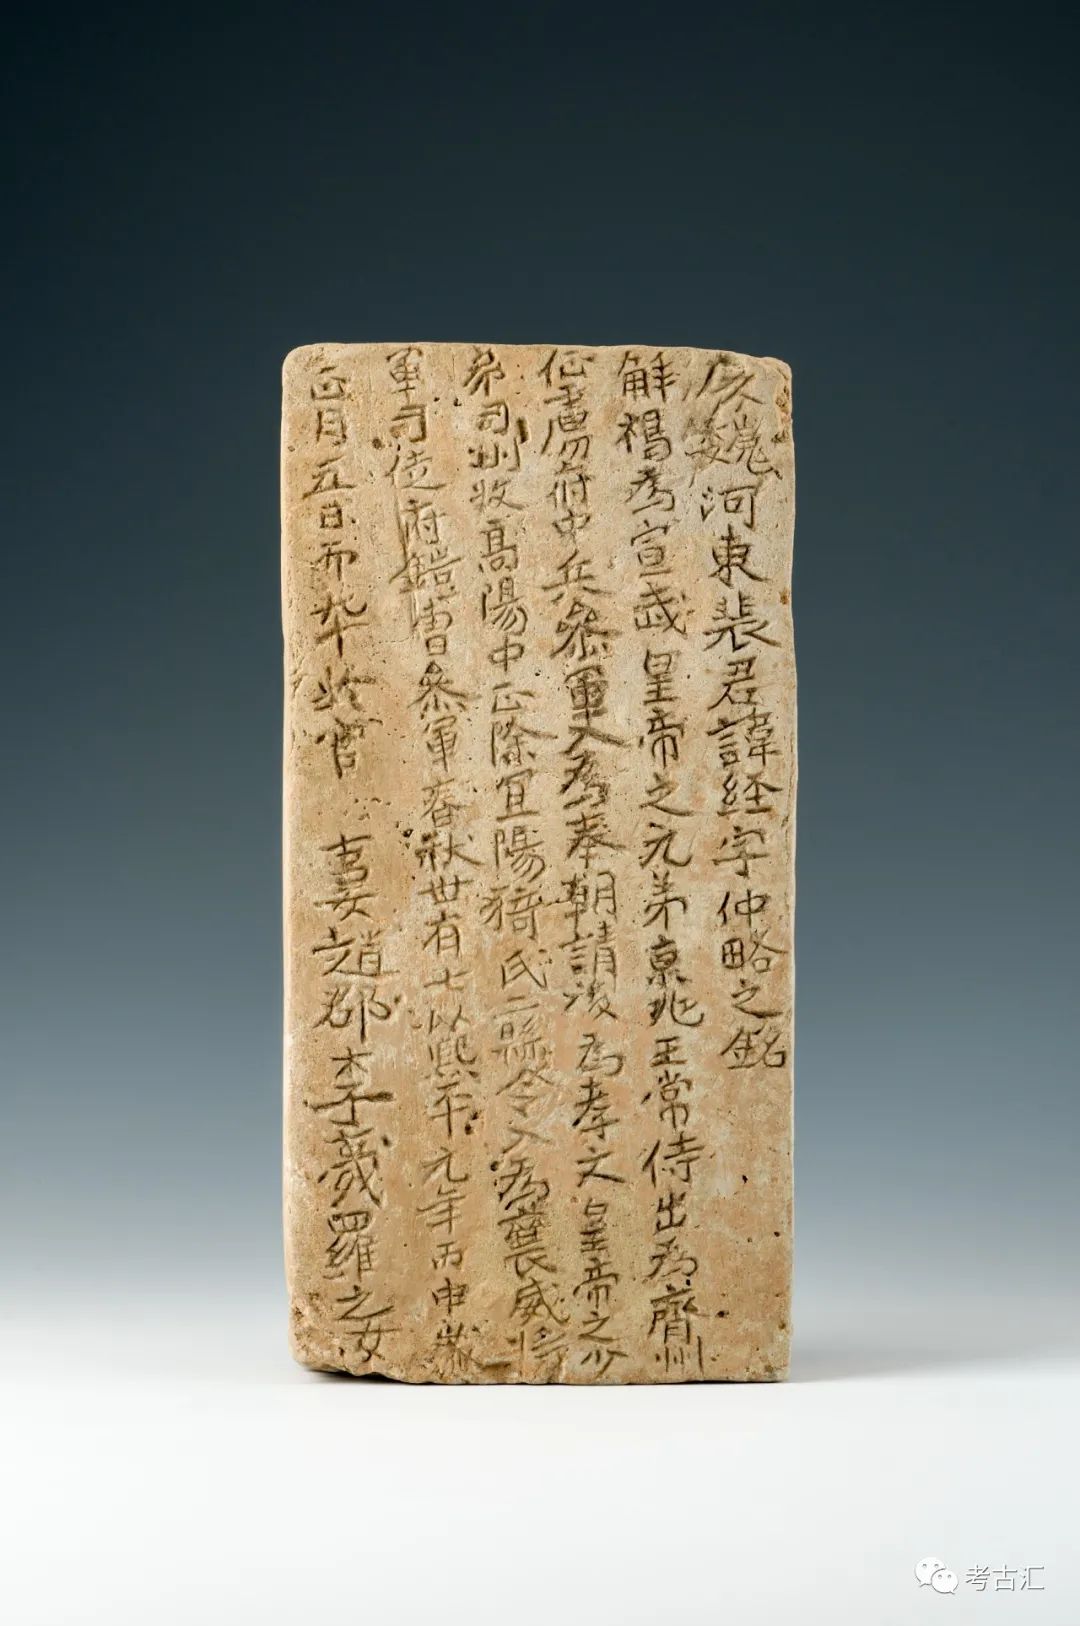 魏河東裴君諱経字仲略之銘
解褐為宣武皇帝之元弟京兆王常侍出為齊州
征虜府中兵叅軍入為奉朝請後為孝文皇帝之少
弟司州牧高陽中正除宜陽猗氏二縣令入為襄威將
軍司徒府鎧曹叅軍春秋丗有七以熙平元年丙申歲
正月五日而卒於官 妻趙郡李義羅之女
考古汇